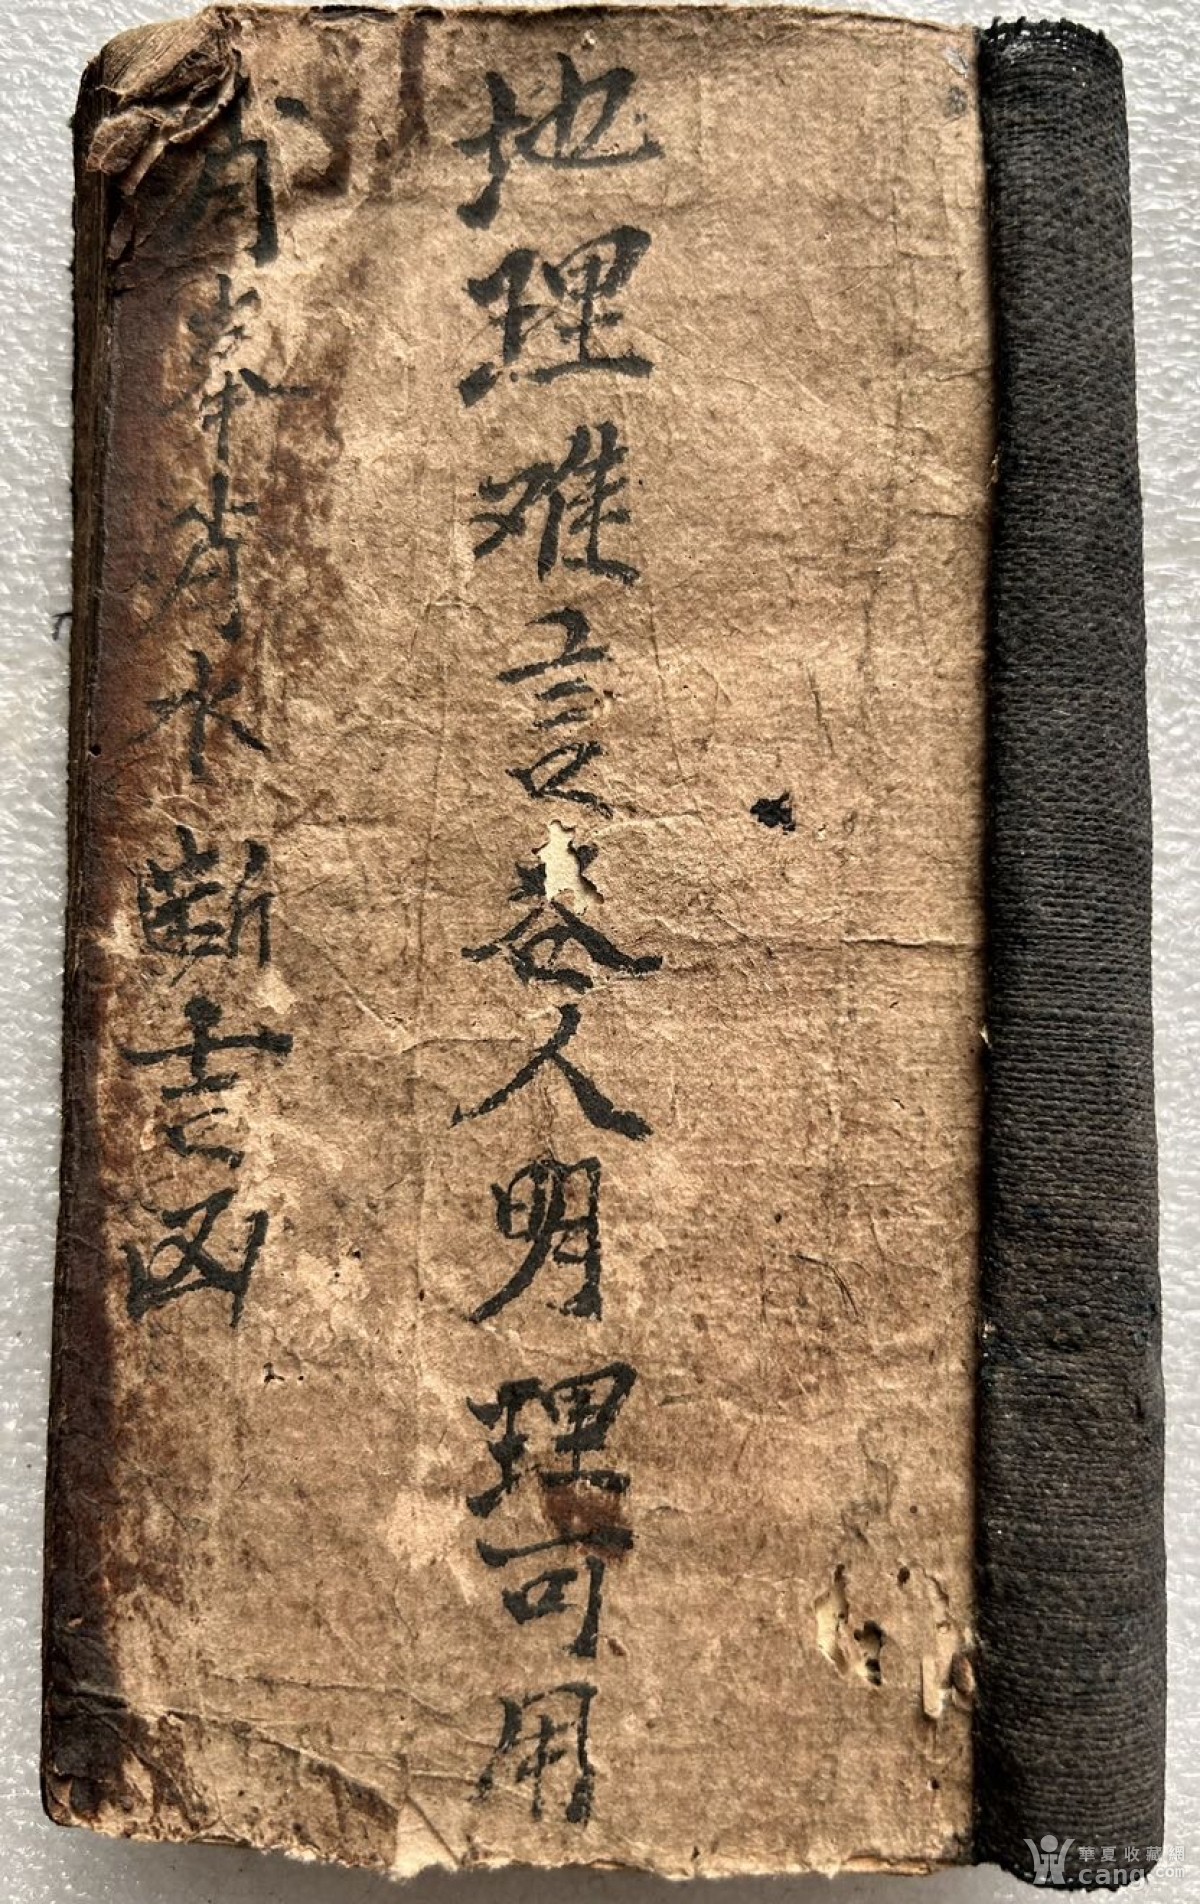 地理难言人明理可用
峯消水斷吉凶
華夏收藏網
cang.com